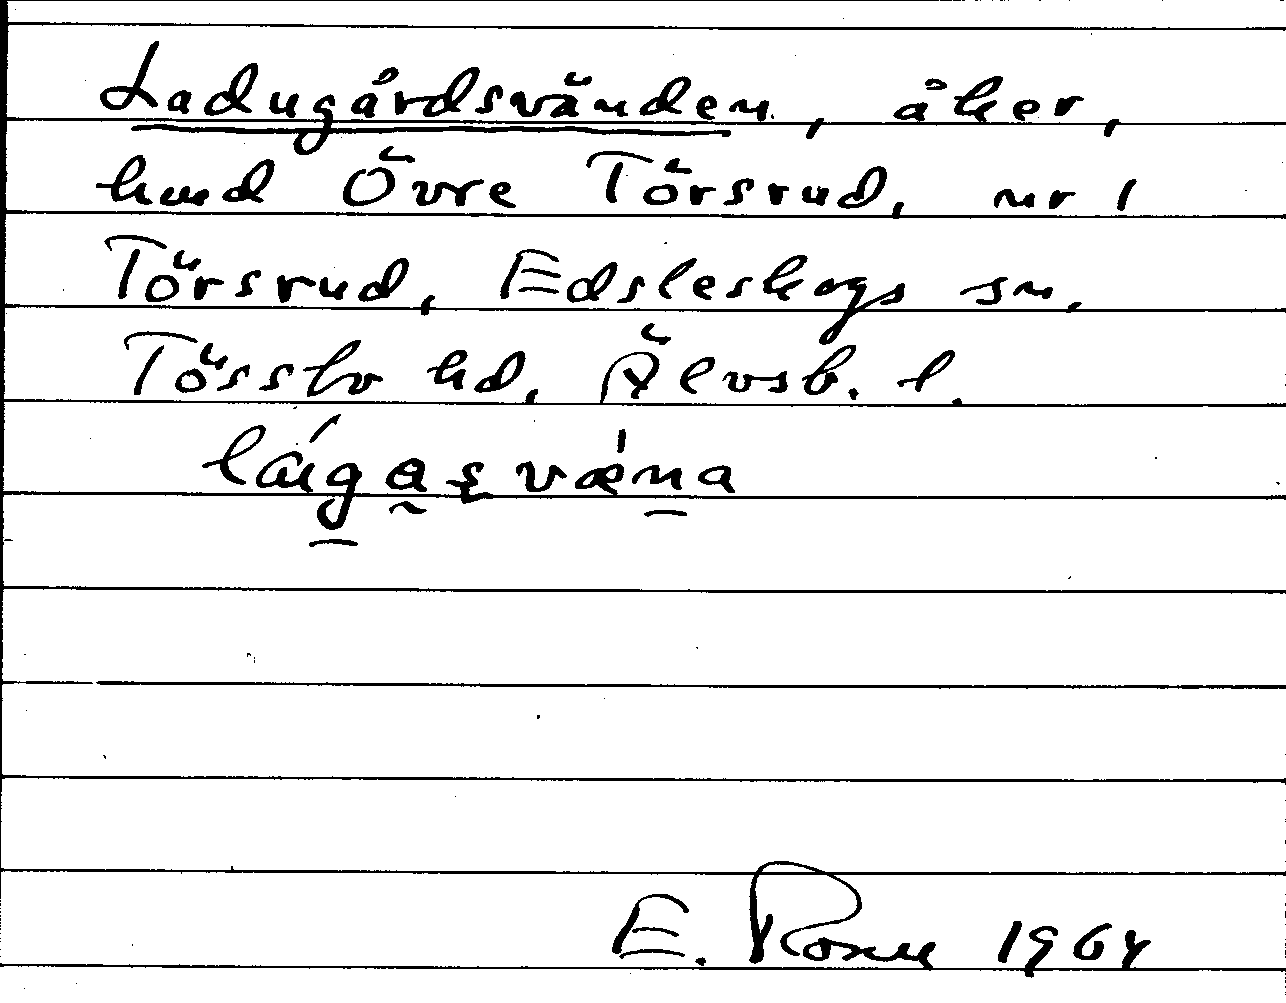 Ladugårdsvänden, åker,
hmd Övre Törsrud, nr 1
Törsrud, Edsleskogs sn.
Tössbo hd. Älvsb. l.
E. 1964